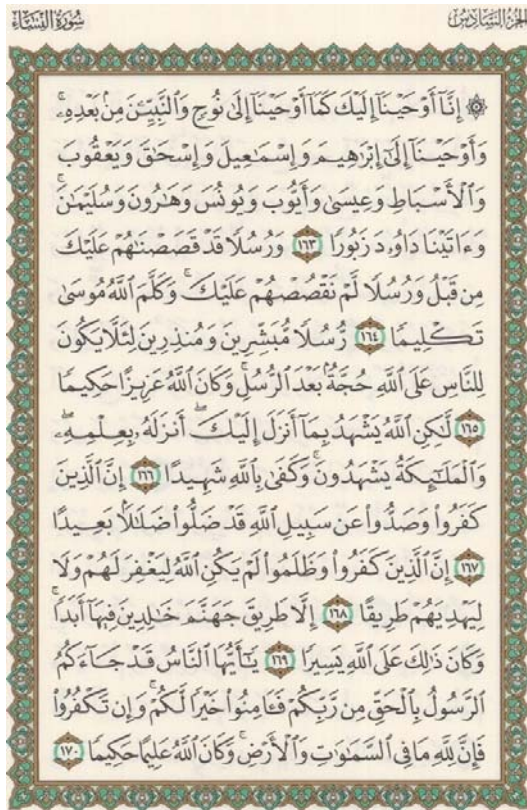 الجزء السادس
سورة النساء
۞ إِنَّآ أَوْحَيْنَآ إِلَيْكَ كَمَآ أَوْحَيْنَآ إِلَىٰ نُوحٍ وَٱلنَّبِيِّـۧنَ مِنۢ بَعْدِهِۦۚ
وَأَوْحَيْنَآ إِلَىٰٓ إِبْرَٰهِيمَ وَإِسْمَـٰعِيلَ وَإِسْحَـٰقَ وَيَعْقُوبَ
وَٱلْأَسْبَاطِ وَعِيسَىٰ وَأَيُّوبَ وَيُونُسَ وَهَـٰرُونَ وَسُلَيْمَـٰنَۚ
وَءَاتَيْنَا دَاوُۥدَ زَبُورًا ١٦٣ وَرُسُلًا قَدْ قَصَصْنَـٰهُمْ عَلَيْكَ
مِن قَبْلُ وَرُسُلًا لَّمْ نَقْصُصْهُمْ عَلَيْكَۚ وَكَلَّمَ ٱللَّهُ مُوسَىٰ
تَكْلِيمًا ١٦٤ رُّسُلًا مُّبَشِّرِينَ وَمُنذِرِينَ لِئَلَّا يَكُونَ
لِلنَّاسِ عَلَى ٱللَّهِ حُجَّةٌۢ بَعْدَ ٱلرُّسُلِۚ وَكَانَ ٱللَّهُ عَزِيزًا حَكِيمًا
١٦٥ لَّـٰكِنِ ٱللَّهُ يَشْهَدُ بِمَآ أَنزَلَ إِلَيْكَۖ أَنزَلَهُۥ بِعِلْمِهِۦۖ
وَٱلْمَلَـٰٓئِكَةُ يَشْهَدُونَۚ وَكَفَىٰ بِٱللَّهِ شَهِيدًا ١٦٦ إِنَّ ٱلَّذِينَ
كَفَرُوا۟ وَصَدُّوا۟ عَن سَبِيلِ ٱللَّهِ قَدْ ضَلُّوا۟ ضَلَـٰلًۢا بَعِيدًا
١٦٧ إِنَّ ٱلَّذِينَ كَفَرُوا۟ وَظَلَمُوا۟ لَمْ يَكُنِ ٱللَّهُ لِيَغْفِرَ لَهُمْ وَلَا
لِيَهْدِيَهُمْ طَرِيقًا ١٦٨ إِلَّا طَرِيقَ جَهَنَّمَ خَـٰلِدِينَ فِيهَآ أَبَدًاۚ
وَكَانَ ذَٰلِكَ عَلَى ٱللَّهِ يَسِيرًا ١٦٩ يَـٰٓأَيُّهَا ٱلنَّاسُ قَدْ جَآءَكُمُ
ٱلرَّسُولُ بِٱلْحَقِّ مِن رَّبِّكُمْ فَـَٔامِنُوا۟ خَيْرًا لَّكُمْۚ وَإِن تَكْفُرُوا۟
فَإِنَّ لِلَّهِ مَا فِى ٱلسَّمَـٰوَٰتِ وَٱلْأَرْضِۚ وَكَانَ ٱللَّهُ عَلِيمًا حَكِيمًا ١٧٠